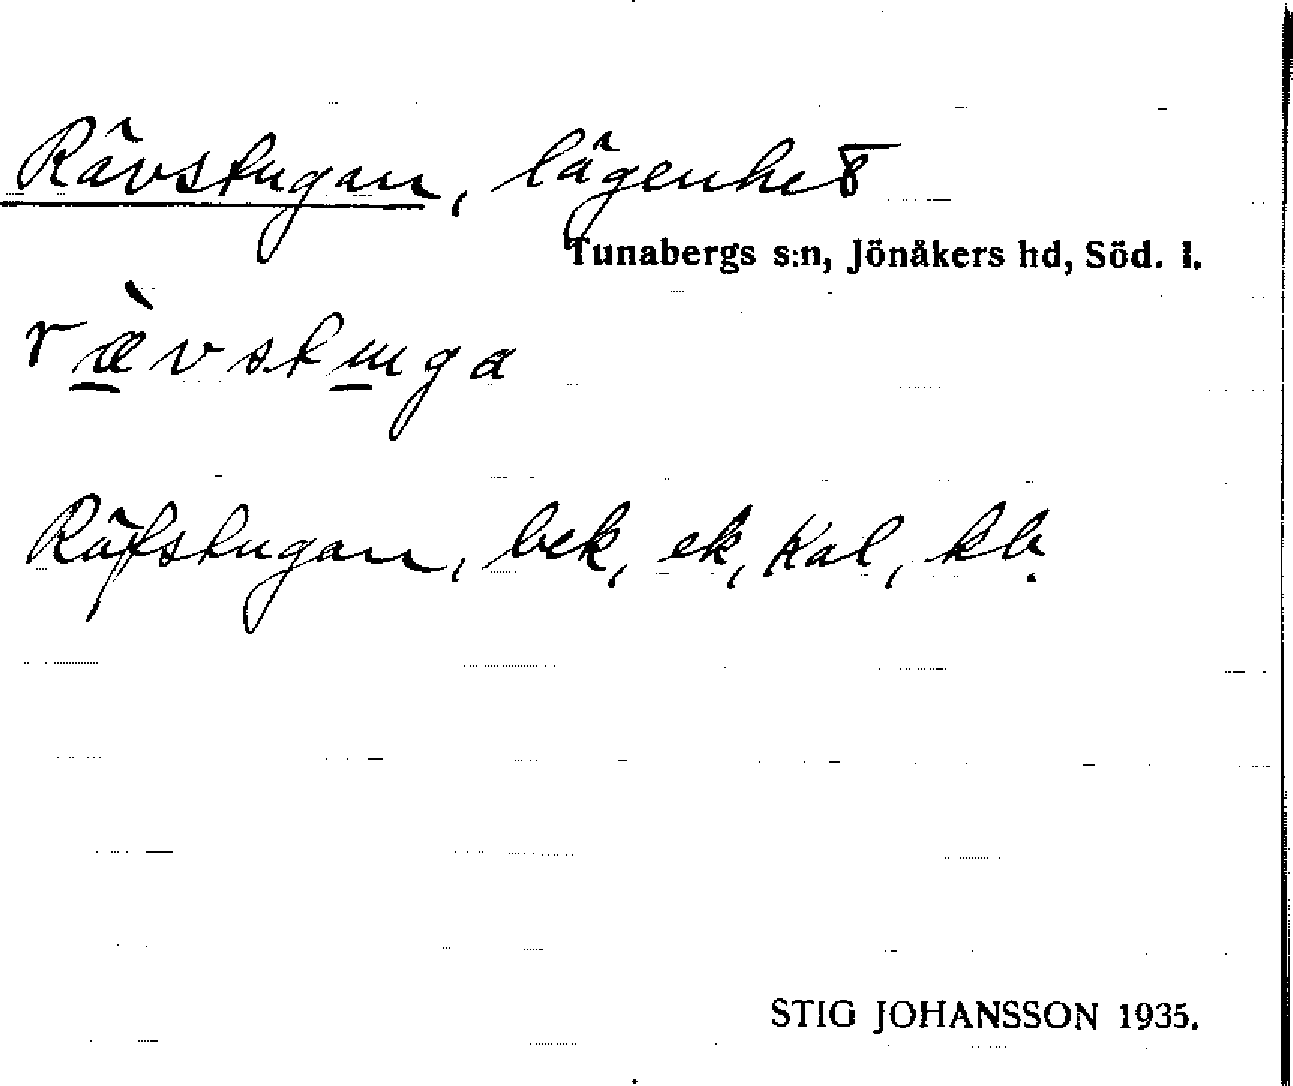 Rävstugan, lägenhet
Tunabergs s:n, Jönåkers hd, Söd. l.
ræ̀vstuga
Räfstugan, bek, ek, Kal, kb.
STIG JOHANSSON 1935.